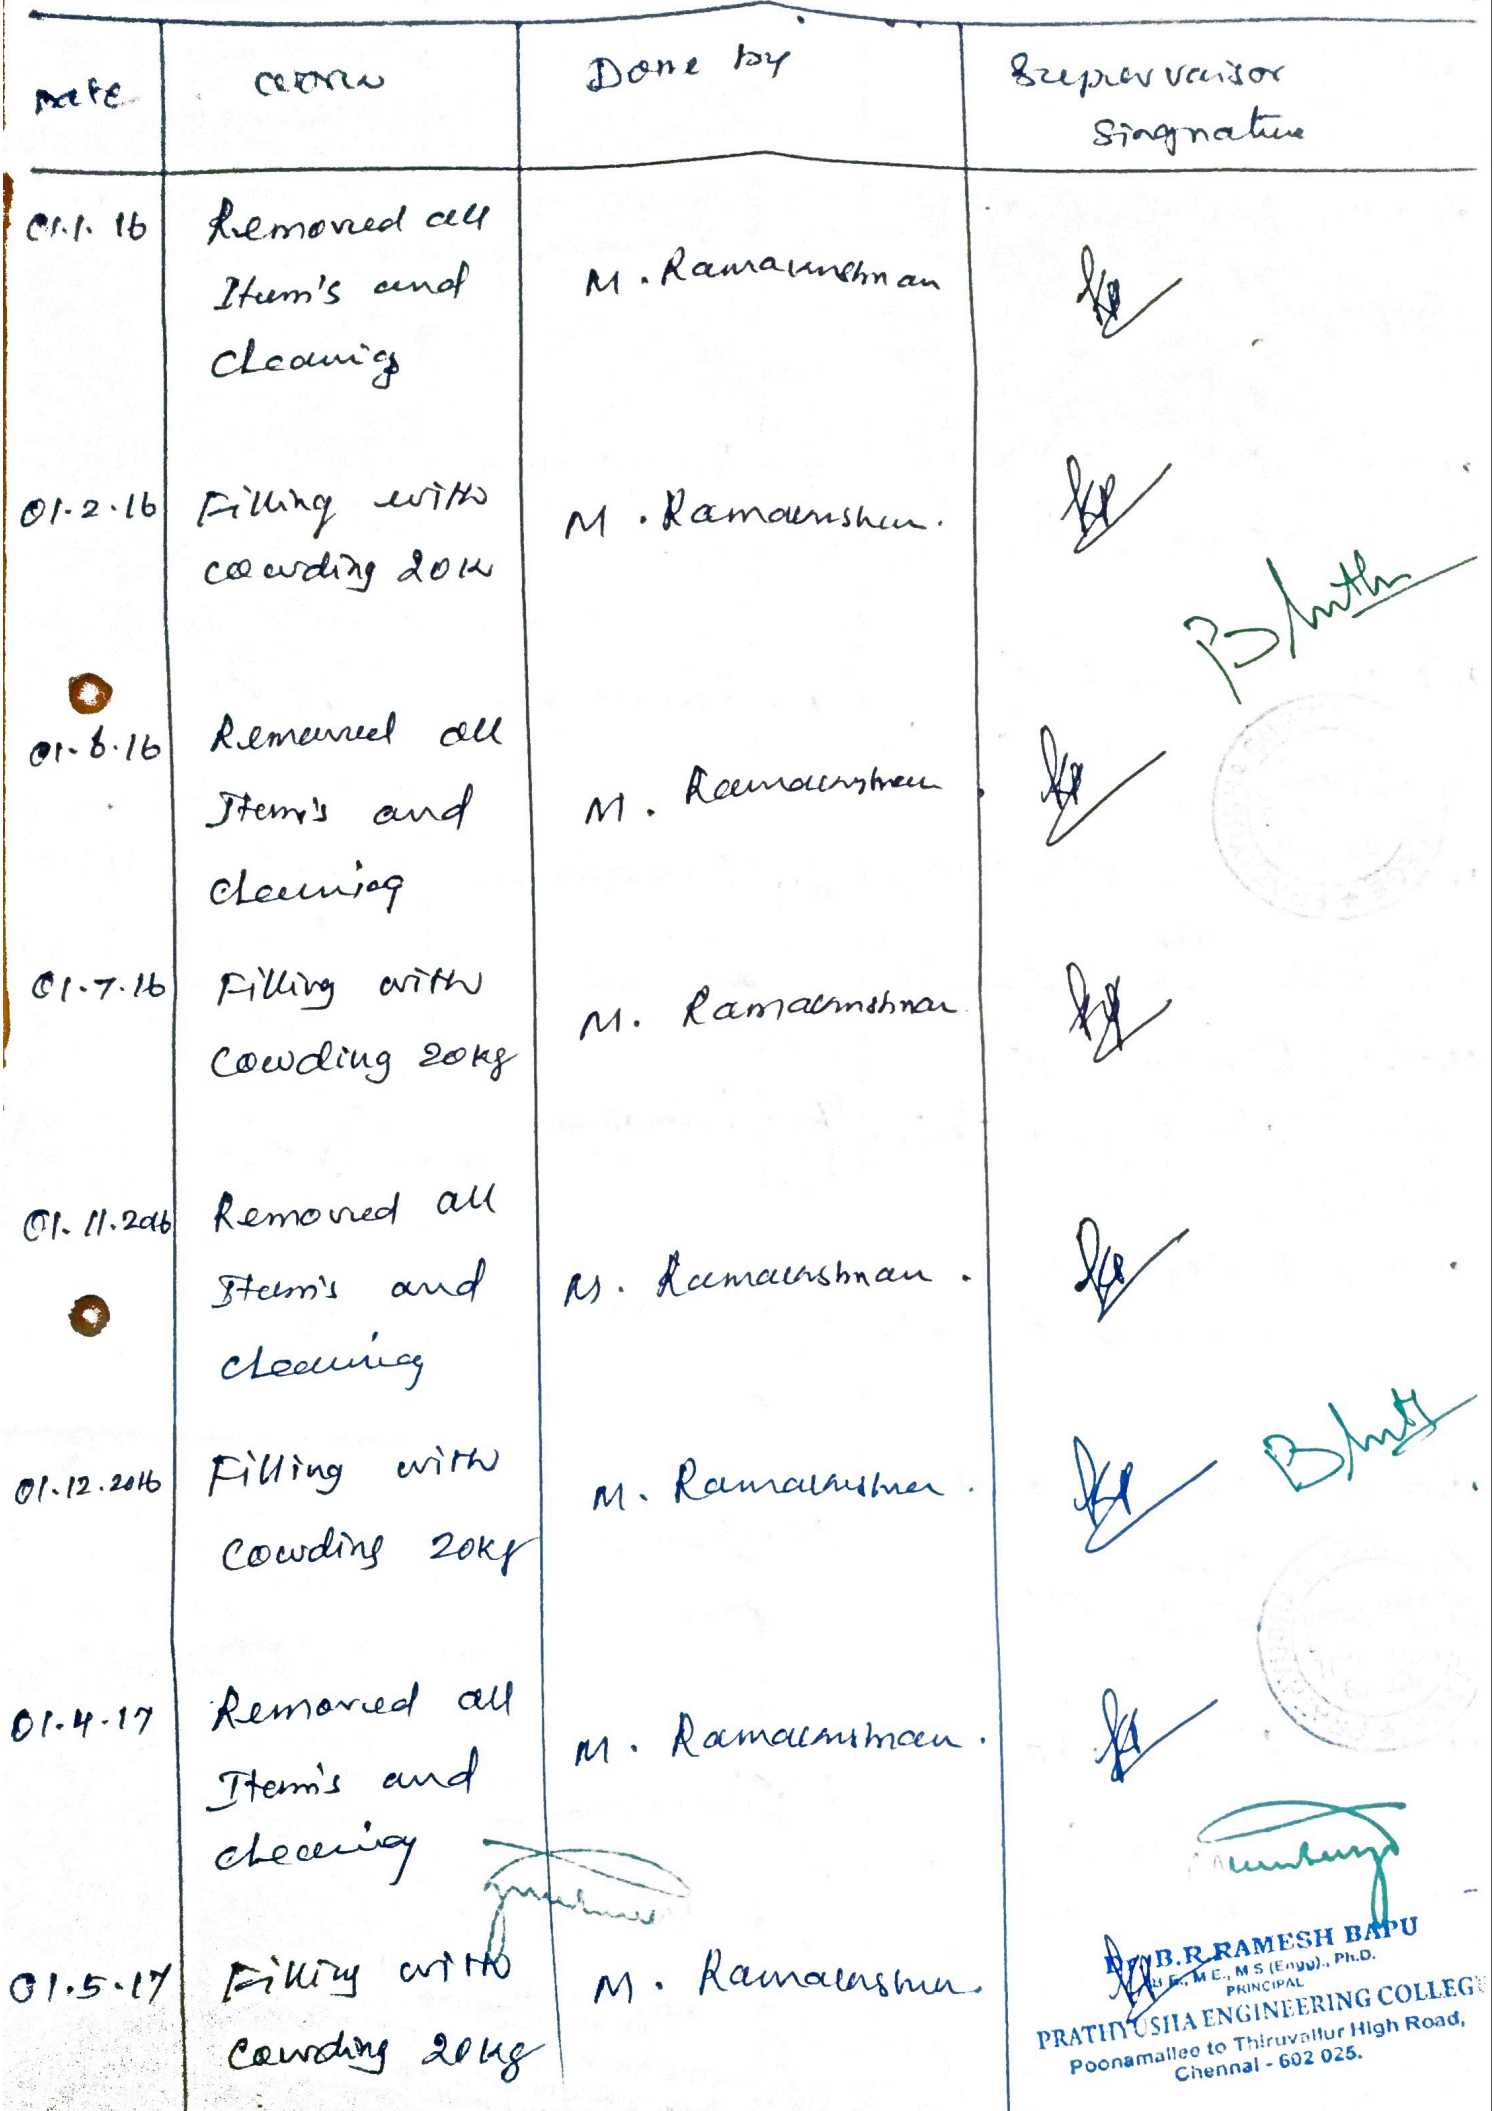 Date
Done by
Suprervaisor
Singnature
01.1.16
Removed all
Item's and
Cleaning
M. Ramakrishnan
01.2.16
Filling with
cowding 20k
M. Ramakrishnan.
01.6.16
Removed all
Item's and
cleaning
M. Ramakrishnan.
01.7.16
Filling with
Cowding 20kg
M. Ramakrishnan
01.11.2016
Removed all
Item's and
cleaning
M. Ramakrishnan.
01.12.2016
Filling with
Cowding 20kg
M. Ramakrishnan.
01.4.17
Removed all
Item's and
cleaning
M. Ramakrishnan.
01.5.17
Filling with
Cowding 20kg
M. Ramakrishnan.
Dr. B.R. RAMESH BAPU
B.E., M.E., M S (Engg)., Ph.D.
PRINCIPAL
PRATHYUSHA ENGINEERING COLLEGE
Poonamallee to Thiruvallur High Road,
Chennai - 602 025.